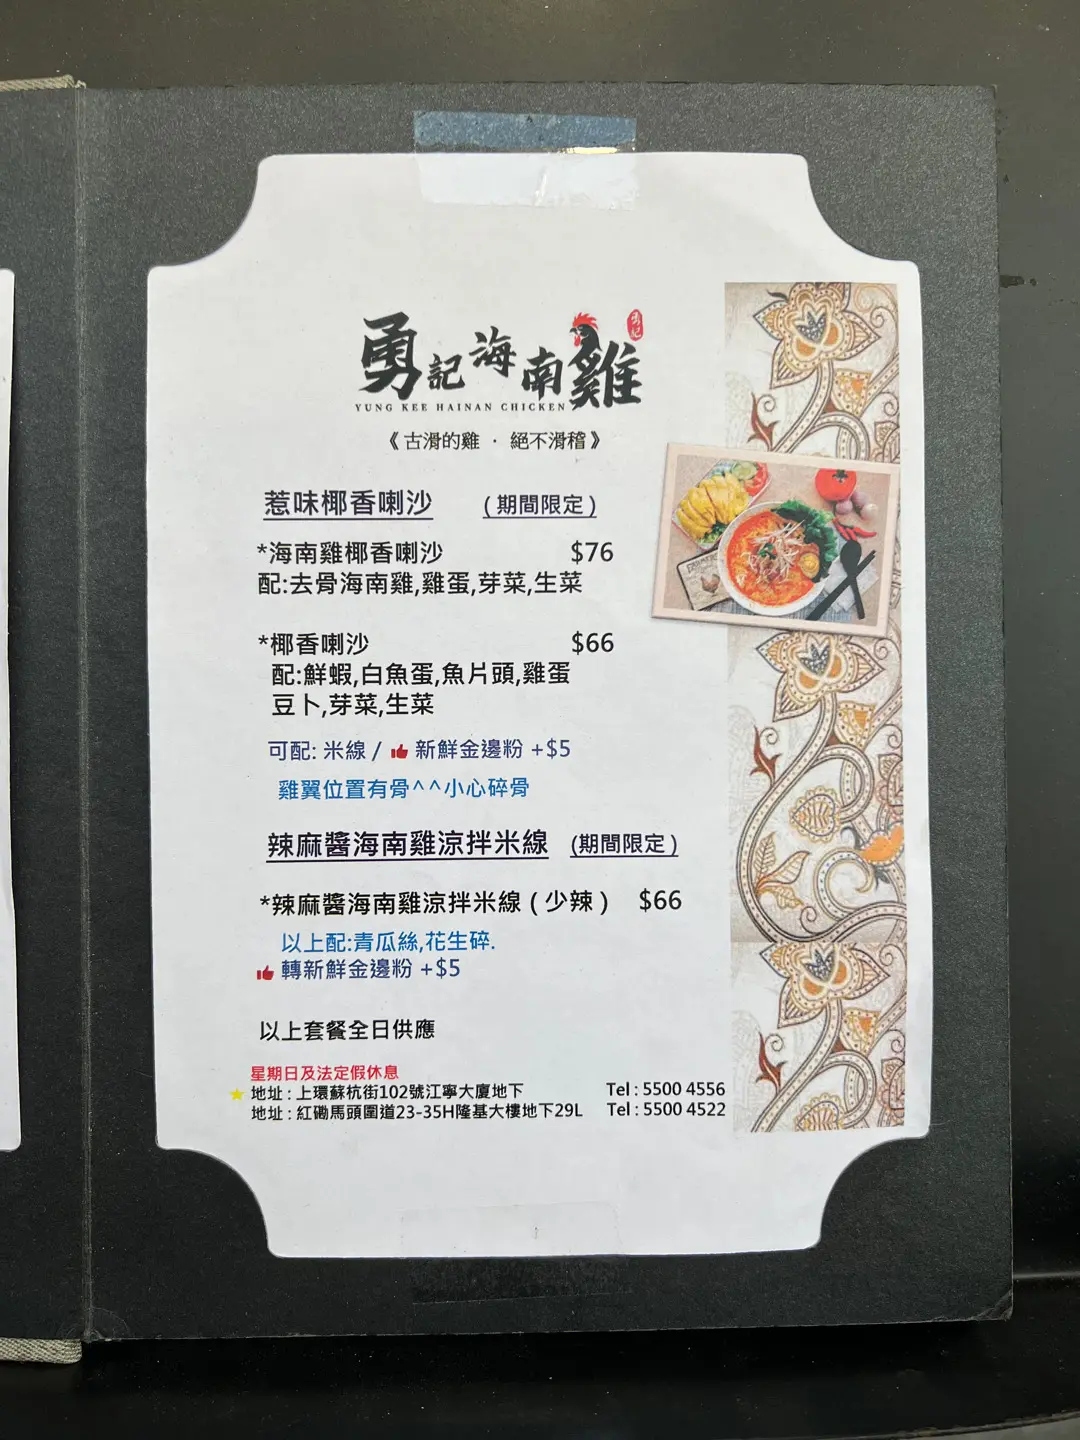 勇記海南雞
勇記
YUNG KEE HAINAN CHICKEN
《古滑的雞 · 絕不滑稽》
惹味椰香喇沙 (期間限定)
*海南雞椰香喇沙 $76
配:去骨海南雞,雞蛋,芽菜,生菜
*椰香喇沙 $66
配:鮮蝦,白魚蛋,魚片頭,雞蛋
豆卜,芽菜,生菜
可配: 米線 / 新鮮金邊粉 +$5
雞翼位置有骨^^小心碎骨
辣麻醬海南雞涼拌米線 (期間限定)
*辣麻醬海南雞涼拌米線 (少辣) $66
以上配:青瓜絲,花生碎.
轉新鮮金邊粉 +$5
以上套餐全日供應
星期日及法定假休息
地址 : 上環蘇杭街102號江寧大廈地下 Tel : 5500 4556
地址 : 紅磡馬頭圍道23-35H隆基大樓地下29L Tel : 5500 4522